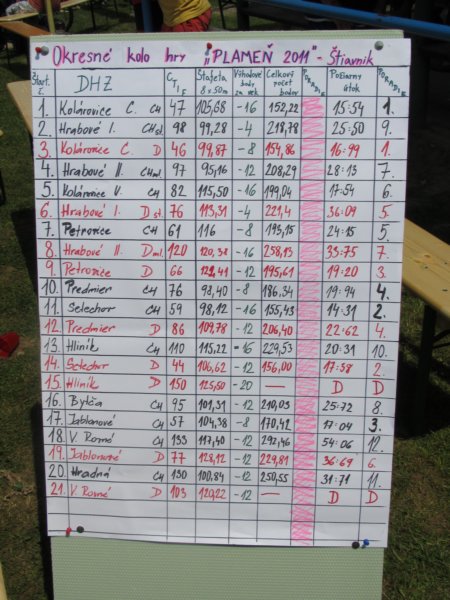 Okresné kolo hry „PLAMEŇ 2011" - Štiavnik
Štart. č. DHZ CTIF Štafeta 8x50m Výhodové body za vek Celkový počet bodov PORADIE Požiarny útok PORADIE
1. Kolárovice C. CH 47 105,68 -16 152,22 15:54 1.
2. Hrabové I. CHst. 98 99,28 -4 218,78 25:50 9.
3. Kolárovice C. D 46 99,87 -8 154,86 16:99 1.
4. Hrabové II. CHml. 97 95,16 -12 208,29 28:13 7.
5. Kolárovice V. CH 82 115,50 -16 199,04 17:54 6.
6. Hrabové I. D st. 76 113,31 -4 221,4 36:09 5.
7. Petrovice CH 61 116 -8 193,15 24:15 5.
8. Hrabové II. Dml. 120 120,38 -16 258,13 33:75 7.
9. Petrovice D 66 122,41 -12 195,61 19:20 3.
10. Predmier CH 76 98,40 -8 186,34 19:94 4.
11. Selechov CH 59 98,12 -16 155,43 14:31 2.
12. Predmier D 86 109,78 -12 206,40 22:62 4.
13. Hliník CH 110 115,22 -16 229,53 20:31 10.
14. Selechov D 44 106,62 -12 156,00 17:38 2.
15. Hliník D 150 125,50 -20 — D D
16. Bytča CH 95 101,31 -12 210,03 25:72 8.
17. Jablonové CH 57 104,38 -8 170,42 17:04 3.
18. V. Rovné CH 133 117,40 -12 292,46 54:06 12.
19. Jablonové D 77 128,12 -12 229,81 36:69 6.
20. Hradná CH 130 100,84 -12 250,55 31:71 11.
21. V. Rovné D 103 120,22 -12 — D D